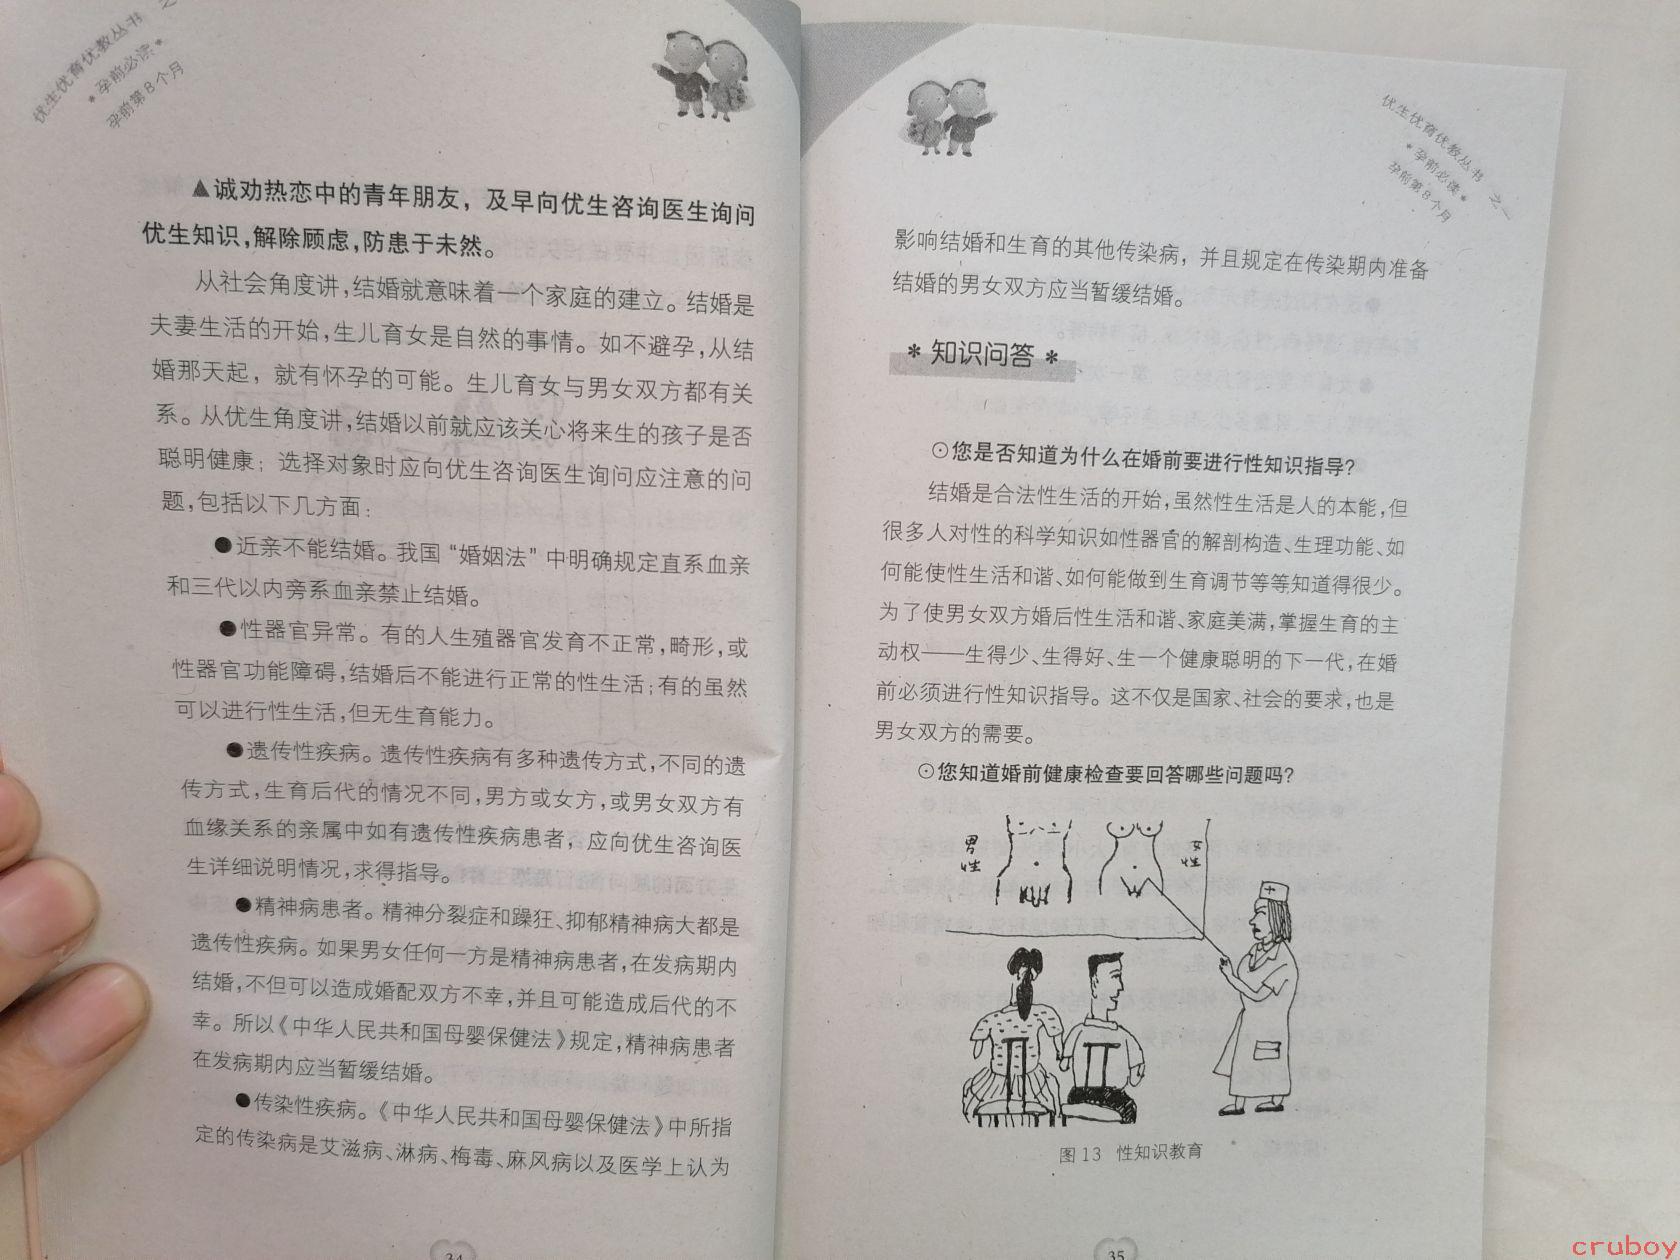 优生优育优教丛书 之
*孕前必读*
孕前第8个月
▲诚劝热恋中的青年朋友，及早向优生咨询医生询问
优生知识，解除顾虑，防患于未然。
从社会角度讲，结婚就意味着一个家庭的建立。结婚是
夫妻生活的开始，生儿育女是自然的事情。如不避孕，从结
婚那天起，就有怀孕的可能。生儿育女与男女双方都有关
系。从优生角度讲，结婚以前就应该关心将来生的孩子是否
聪明健康；选择对象时应向优生咨询医生询问应注意的问
题，包括以下几方面：
●近亲不能结婚。我国“婚姻法”中明确规定直系血亲
和三代以内旁系血亲禁止结婚。
●性器官异常。有的人生殖器官发育不正常，畸形，或
性器官功能障碍，结婚后不能进行正常的性生活；有的虽然
可以进行性生活，但无生育能力。
●遗传性疾病。遗传性疾病有多种遗传方式，不同的遗
传方式，生育后代的情况不同，男方或女方，或男女双方有
血缘关系的亲属中如有遗传性疾病患者，应向优生咨询医
生详细说明情况，求得指导。
●精神病患者。精神分裂症和躁狂、抑郁精神病大都是
遗传性疾病。如果男女任何一方是精神病患者，在发病期内
结婚，不但可以造成婚配双方不幸，并且可能造成后代的不
幸。所以《中华人民共和国母婴保健法》规定，精神病患者
在发病期内应当暂缓结婚。
●传染性疾病。《中华人民共和国母婴保健法》中所指
定的传染病是艾滋病、淋病、梅毒、麻风病以及医学上认为
34
优生优育优教丛书 之一
*孕前必读*
孕前第8个月
影响结婚和生育的其他传染病，并且规定在传染期内准备
结婚的男女双方应当暂缓结婚。
*知识问答*
⊙您是否知道为什么在婚前要进行性知识指导？
结婚是合法性生活的开始，虽然性生活是人的本能，但
很多人对性的科学知识如性器官的解剖构造、生理功能、如
何能使性生活和谐、如何能做到生育调节等等知道得很少。
为了使男女双方婚后性生活和谐、家庭美满，掌握生育的主
动权——生得少、生得好、生一个健康聪明的下一代，在婚
前必须进行性知识指导。这不仅是国家、社会的要求，也是
男女双方的需要。
⊙您知道婚前健康检查要回答哪些问题吗？
男性
女性
图13 性知识教育
35
cruboy